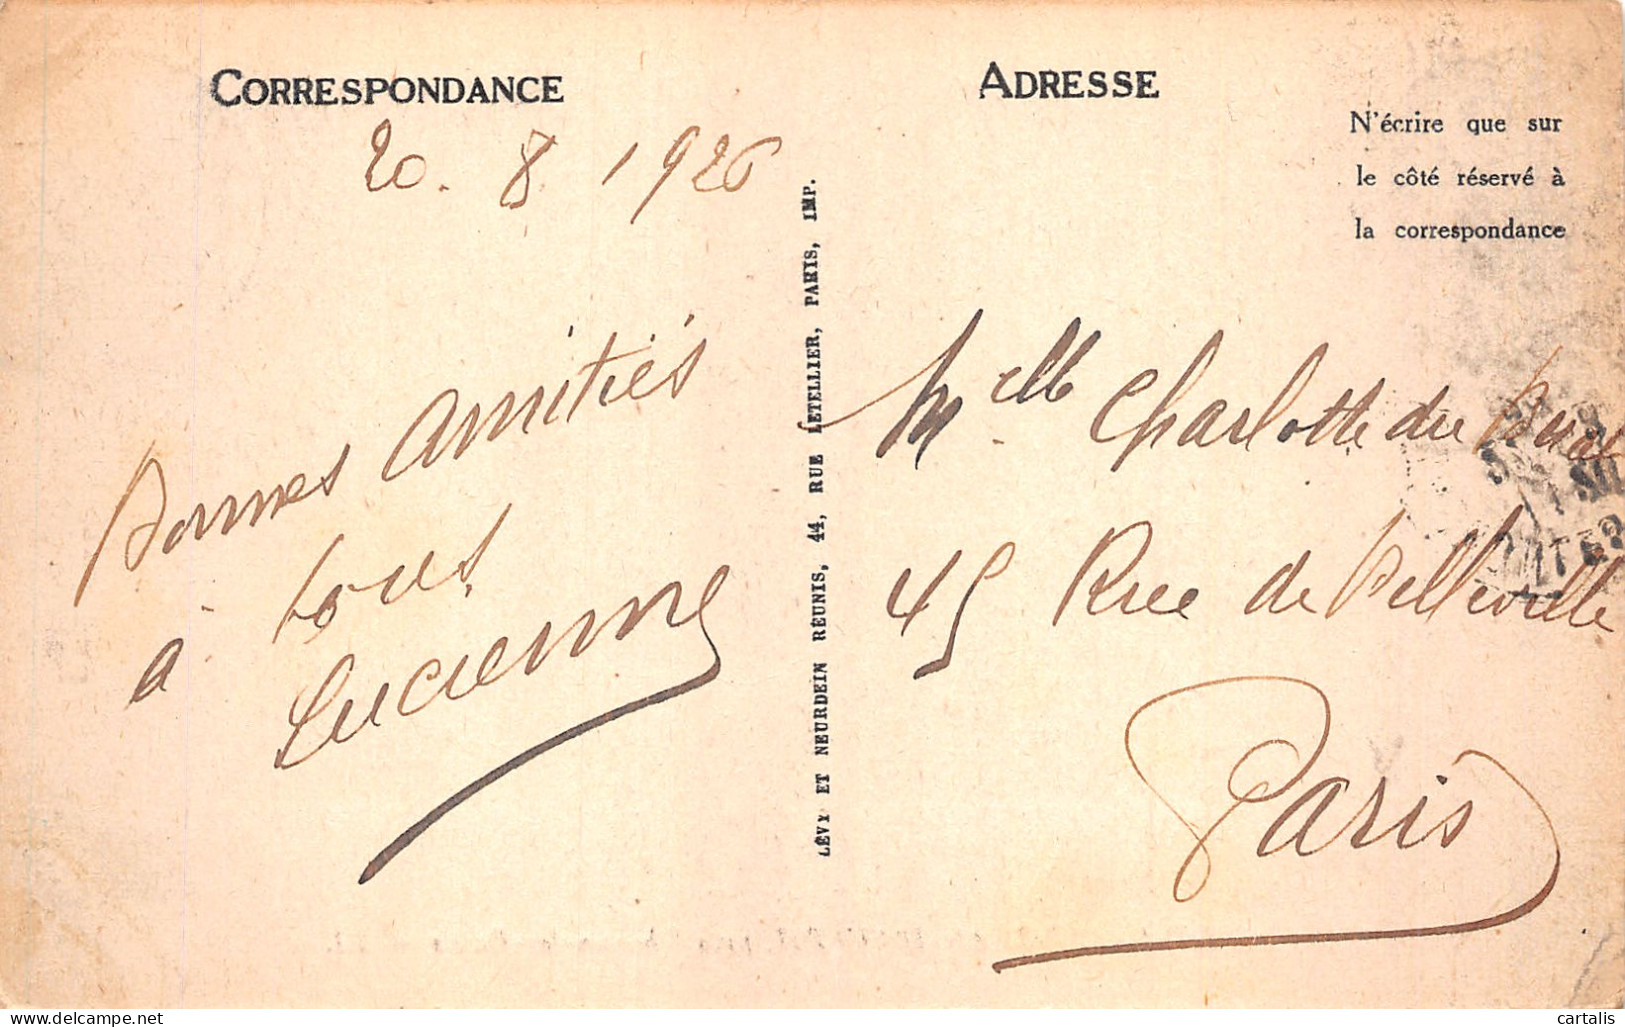 CORRESPONDANCE
20. 8. 1926
Bonnes amitiés
à tous
Lucienne
LÉVY ET NEURDEIN RÉUNIS, 44, RUE LETELLIER, PARIS, IMP.
ADRESSE
N'écrire que sur
le côté réservé à
la correspondance
Melle Charlotte du
45 Rue de Belleville
Paris
delcampe.net
cartalis